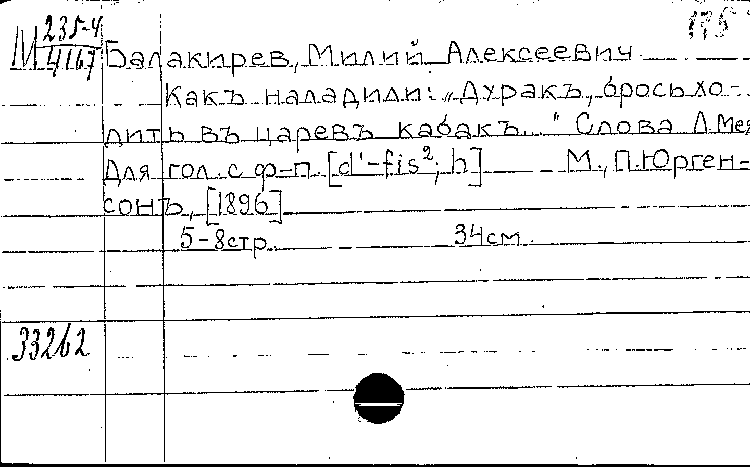 175
М 235-4
4167
Балакирев, Милий Алексеевич
Какъ наладили: „Дуракъ, брось хо-
дить въ царевъ кабакъ..." Слова Л. Мея
Для гол. с ф-п. [d'-fis²; h] М., П. Юрген-
сонъ, [1896]
5-8 стр. 34 см.
33262